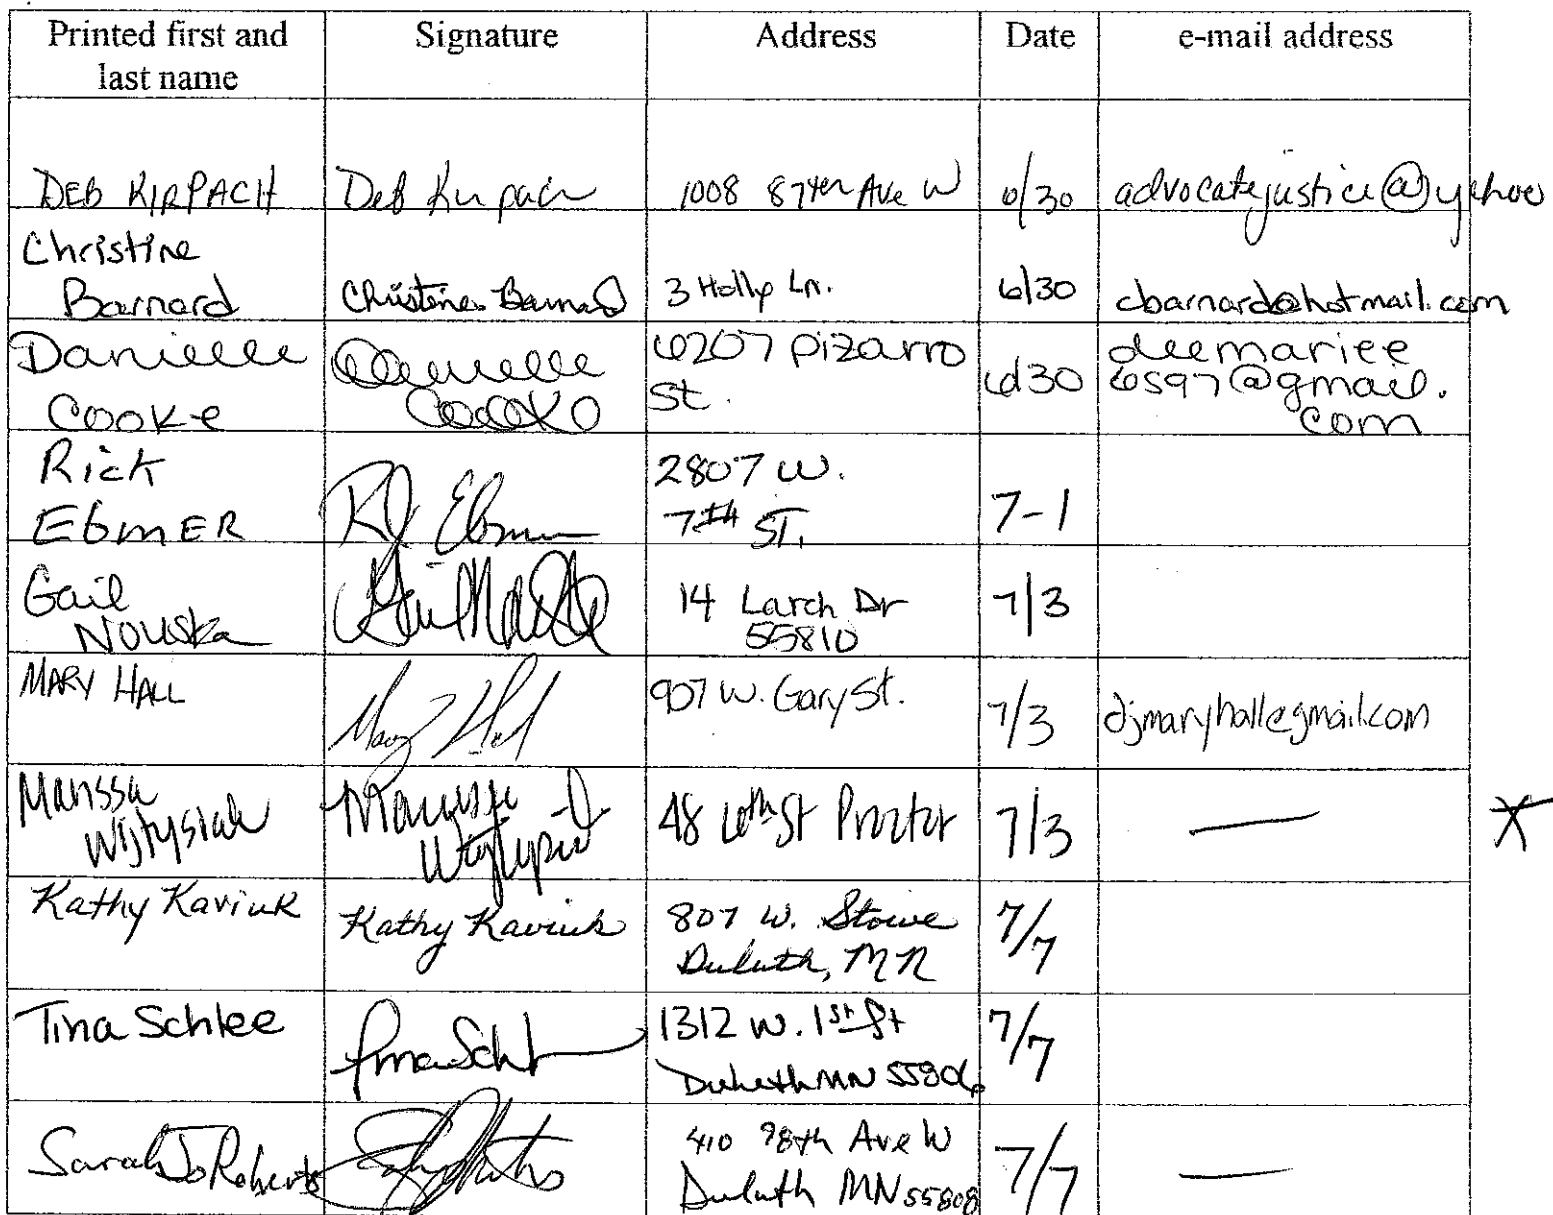 Printed first and last name Signature Address Date e-mail address
DEB KIRPACH Deb Kirpach 1008 87th Ave W 6/30 advocatejustice@yahoo
Christine Barnard Christine Barnard 3 Holly Ln. 6/30 cbarnard@hotmail.com
Danielle Cooke Danielle Cooke 6207 Pizarro St. 6/30 deemariee6597@gmail.com
Rick EbmER RJ Ebmer 2807 W. 7th ST. 7-1
Gail Nouska 14 Larch Dr 55810 7/3
MARY HALL Mary Hall 907 W. Gary St. 7/3 djmaryhall@gmail.com
Marissa 48 6th St Proctor 7/3 —
Kathy Kaviuk Kathy Kaviuk 807 W. Stowe Duluth, MN 7/7
Tina Schlee 1312 W. 1st St Duluth MN 55806 7/7
Sarah Jo Roberts 410 98th Ave W Duluth MN 55808 7/7 —